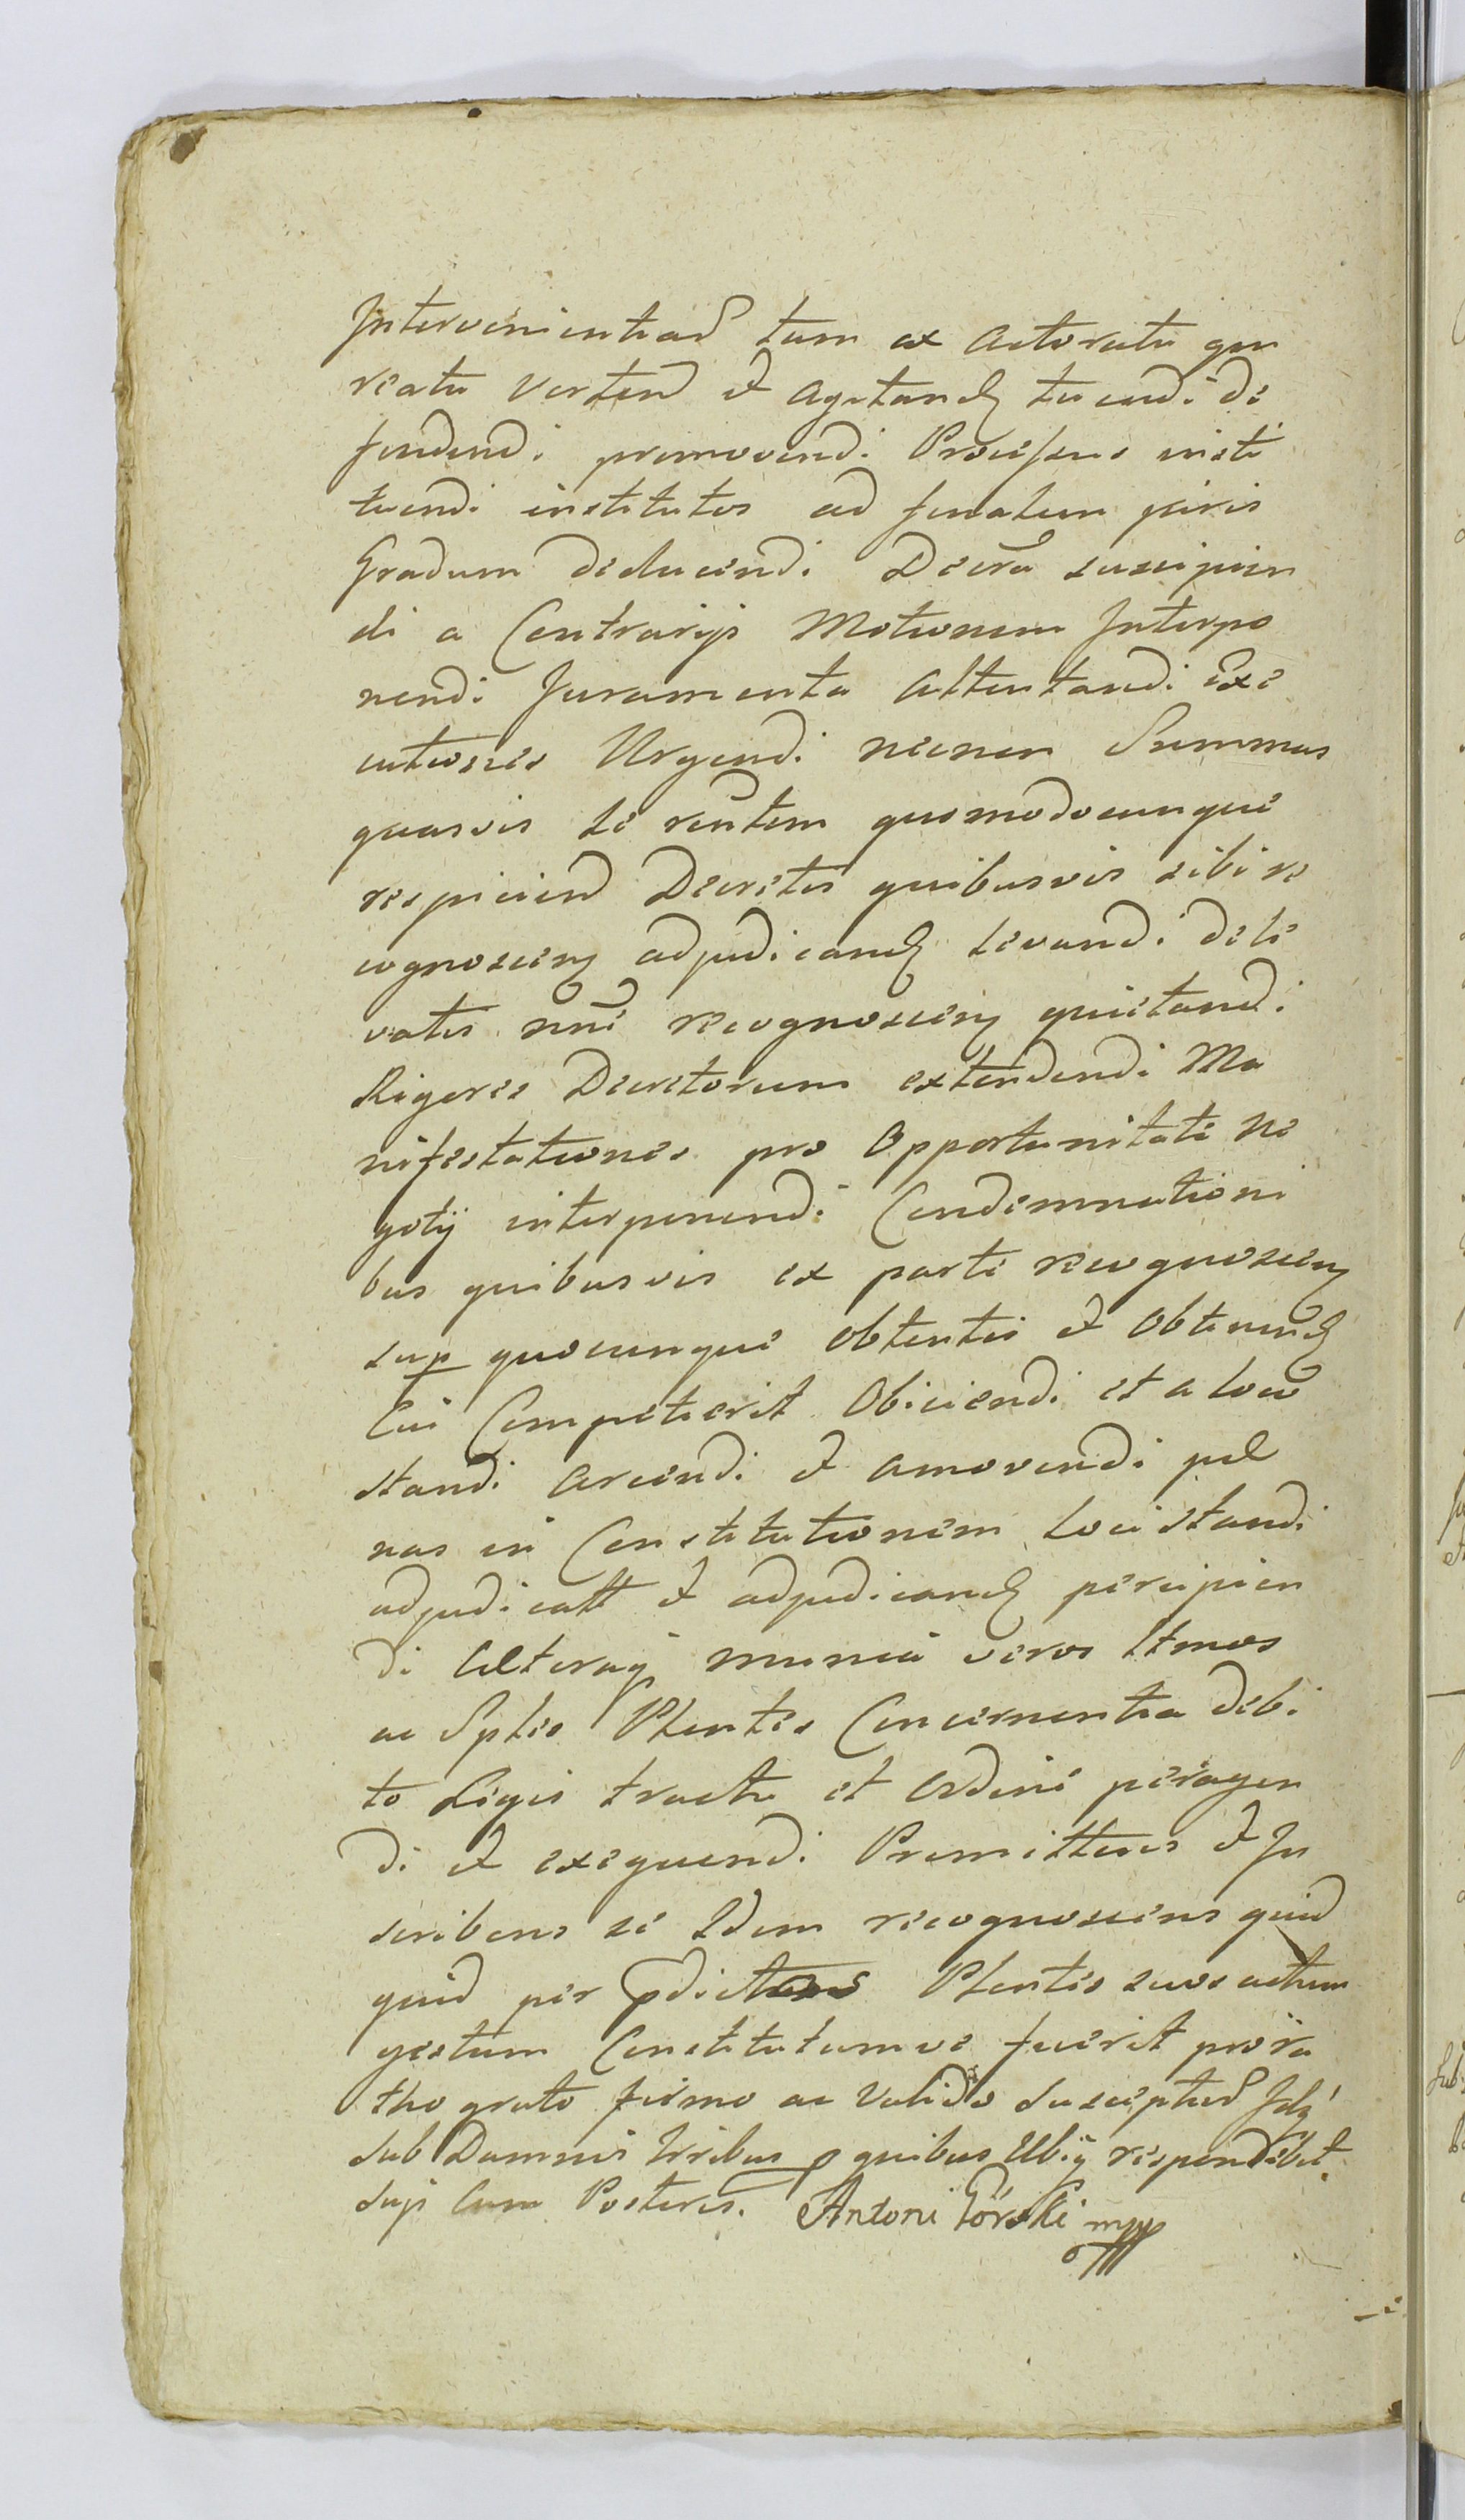 Intervenientiad tum ex Actoratu qm
reatu Vertend et Agitand tuendi de
fendendi promovendi Processus insti
tuendi institutos ad finalem juris
Gradum deducendi Decra suscipien
di a Contrarijs Motionem Interpo
nendi Juramenta Attentandi Exe
cutiones Urgendi necnon Summas
quasvis se rentem quomodocunque
respiciend Decretis quibusvis sibi re
cognoscen adjudicand levandi dele
vatis nne recognoscen quietandi
Rigores Decretorum extendendi Ma
nifestationes pro Opportunitate Ne
gotij interponendi Condemnationi
bus quibusvis ex parte recognoscen
sup quocunque obtentis et Obtinend
Cui Competierit Obiiciendi et a loco
standi arcendi et amovendi pœ
nas in Constitutionem loci standi
adjudicatt et adjudicand percipien
di Alteraq munia veros ltmos
ac Sples Plentes Concernentia debi
to Legis tractu et ordine peragen
di et exequendi Promittens et In
scribens se Idem recognoscens quid
quid per pdictos Plentes suos actum
gestum Constitutumve fuerit pro ra
tho grato firmo ac Valido susceptud Idq
sub Damnis Irribus p quibus Ubiq respondebit
suis cum Posteris. Antoni Górski mpp